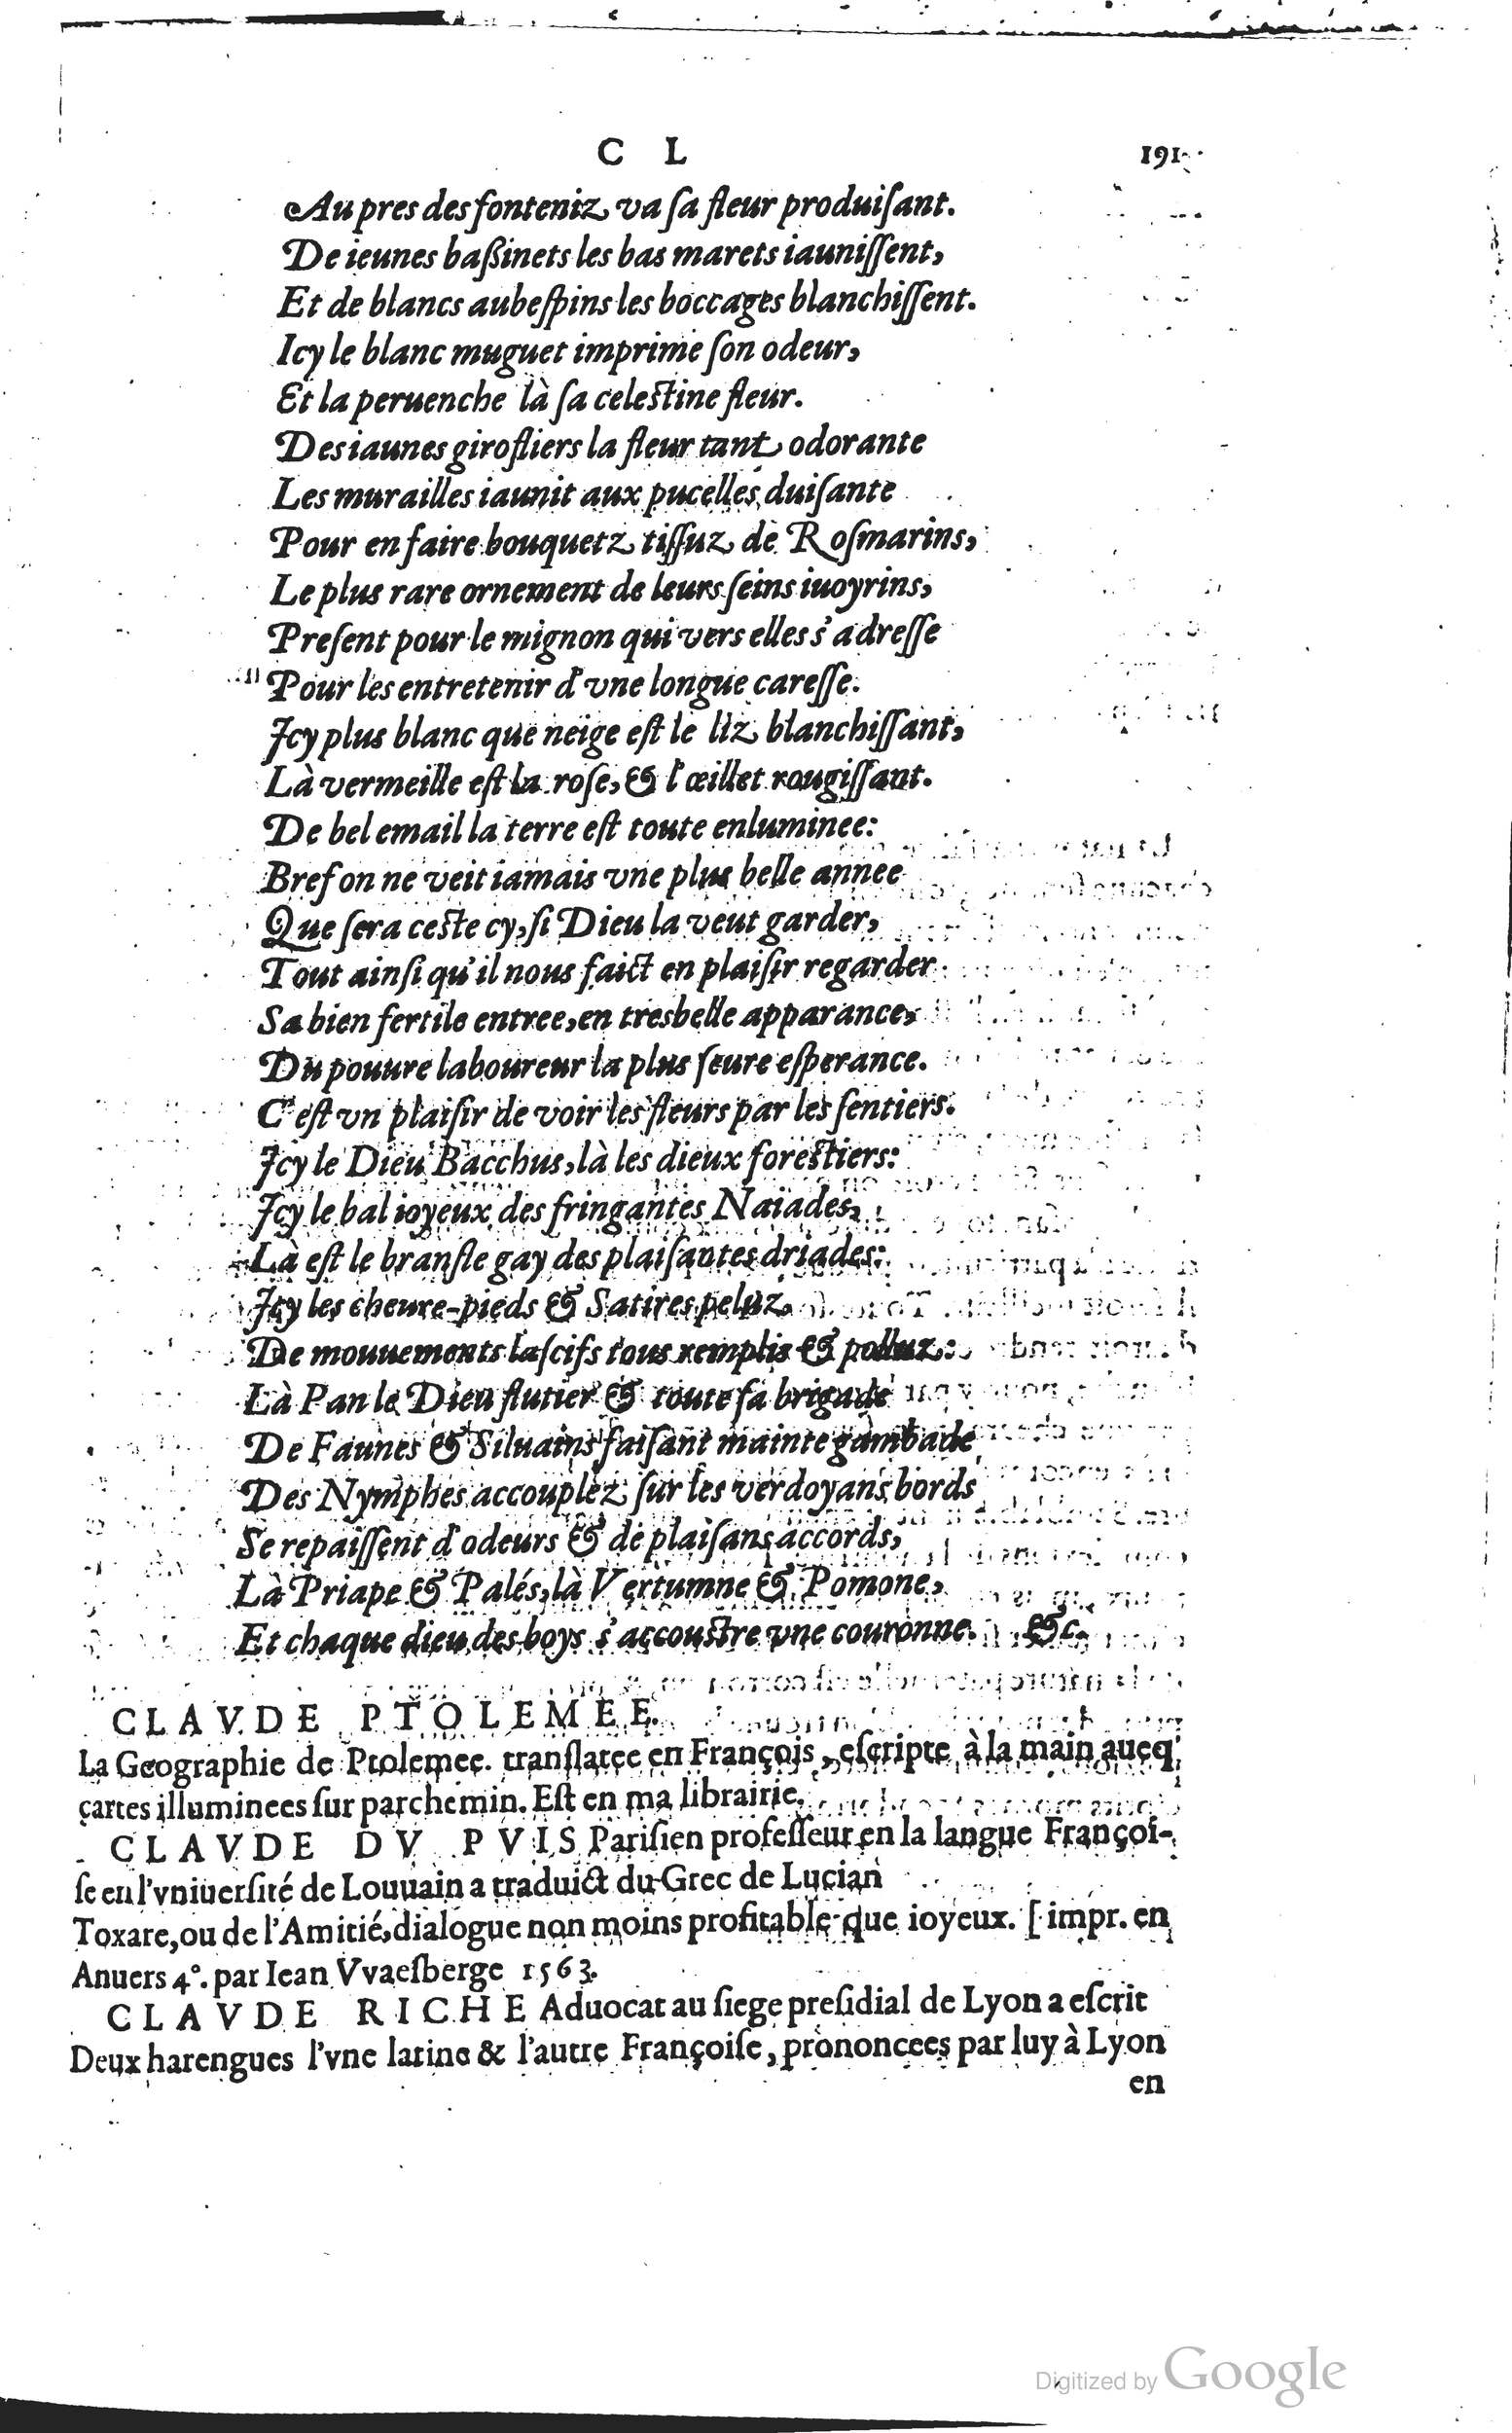 C L 191
Aupres des fonteniz va ſa fleur produiſant.
De ieunes baßinets les bas marets iauniſſent,
Et de blancs aubeſpins les boccages blanchiſſent.
Icy le blanc muguet imprime ſon odeur,
Et la peruenche là ſa celestine fleur.
Des iaunes girofliers la fleur tant odorante
Les murailles iaunit aux pucelles duiſante
Pour en faire bouquetz tiſſuz de Roſmarins,
Le plus rare ornement de leurs ſeins iuoyrins,
Preſent pour le mignon qui vers elles s'adreſſe
Pour les entretenir d'vne longue careſſe.
Icy plus blanc que neige eſt le liz blanchiſſant,
Là vermeille eſt la roſe, & l'œillet rougiſſant.
De bel email la terre eſt toute enluminee:
Bref on ne veit iamais vne plus belle annee
Que ſera ceste cy, ſi Dieu la veut garder,
Tout ainſi qu'il nous faict en plaiſir regarder
Sa bien fertile entree, en tresbelle apparance,
Du pouure laboureur la plus ſeure eſperance.
C'eſt vn plaiſir de voir les fleurs par les ſentiers.
Icy le Dieu Bacchus, là les dieux forestiers:
Icy le bal ioyeux des fringantes Naiades,
Là eſt le branſle gay des plaiſantes driades:
Icy les cheure-pieds & Satires peluz,
De mouuements laſcifs tous remplis & polluz:
Là Pan le Dieu flutier & toute ſa brigade
De Faunes & Siluains faiſant mainte gambade
Des Nymphes accouplez ſur les verdoyans bords
Se repaiſſent d'odeurs & de plaiſans accords,
Là Priape & Palés, là Vertumne & Pomone,
Et chaque dieu des boys s'accoustre vne couronne. &c.
CLAVDE PTOLEMEE.
La Geographie de Ptolemee. tranſlatee en François, eſcripte à la main aueq'
cartes illuminees ſur parchemin. Eſt en ma librairie.
CLAVDE DV PVIS Pariſien profeſſeur en la langue Françoi-
ſe en l'vniuerſité de Louuain a traduict du Grec de Lucian
Toxare, ou de l'Amitié, dialogue non moins profitable que ioyeux. [impr. en
Anuers 4°. par Iean VVaeſberge 1563.
CLAVDE RICHE Aduocat au ſiege preſidial de Lyon a eſcrit
Deux harengues l'vne latine & l'autre Françoiſe, prononcees par luy à Lyon
en
Digitized by Google